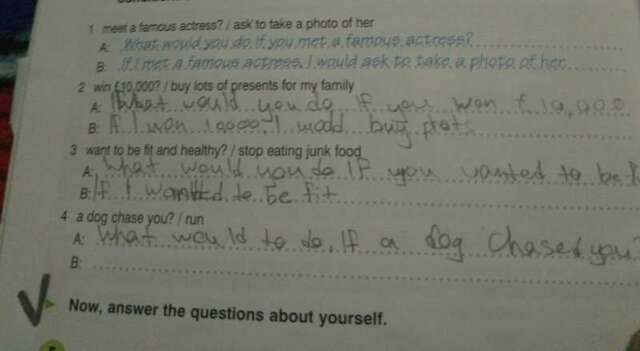 1 meet a famous actress? / ask to take a photo of her
A: What would you do if you met a famous actress?
B: If I met a famous actress, I would ask to take a photo of her.
2 win £10,000? / buy lots of presents for my family
A: What would you do If you won £ 10,000
B: If I won 10000, I would buy
3 want to be fit and healthy? / stop eating junk food
A: What would you do If you wanted to be f
B: If I wanted to be fit
4 a dog chase you? / run
A: What would to do. If a dog chased you?
B:
Now, answer the questions about yourself.